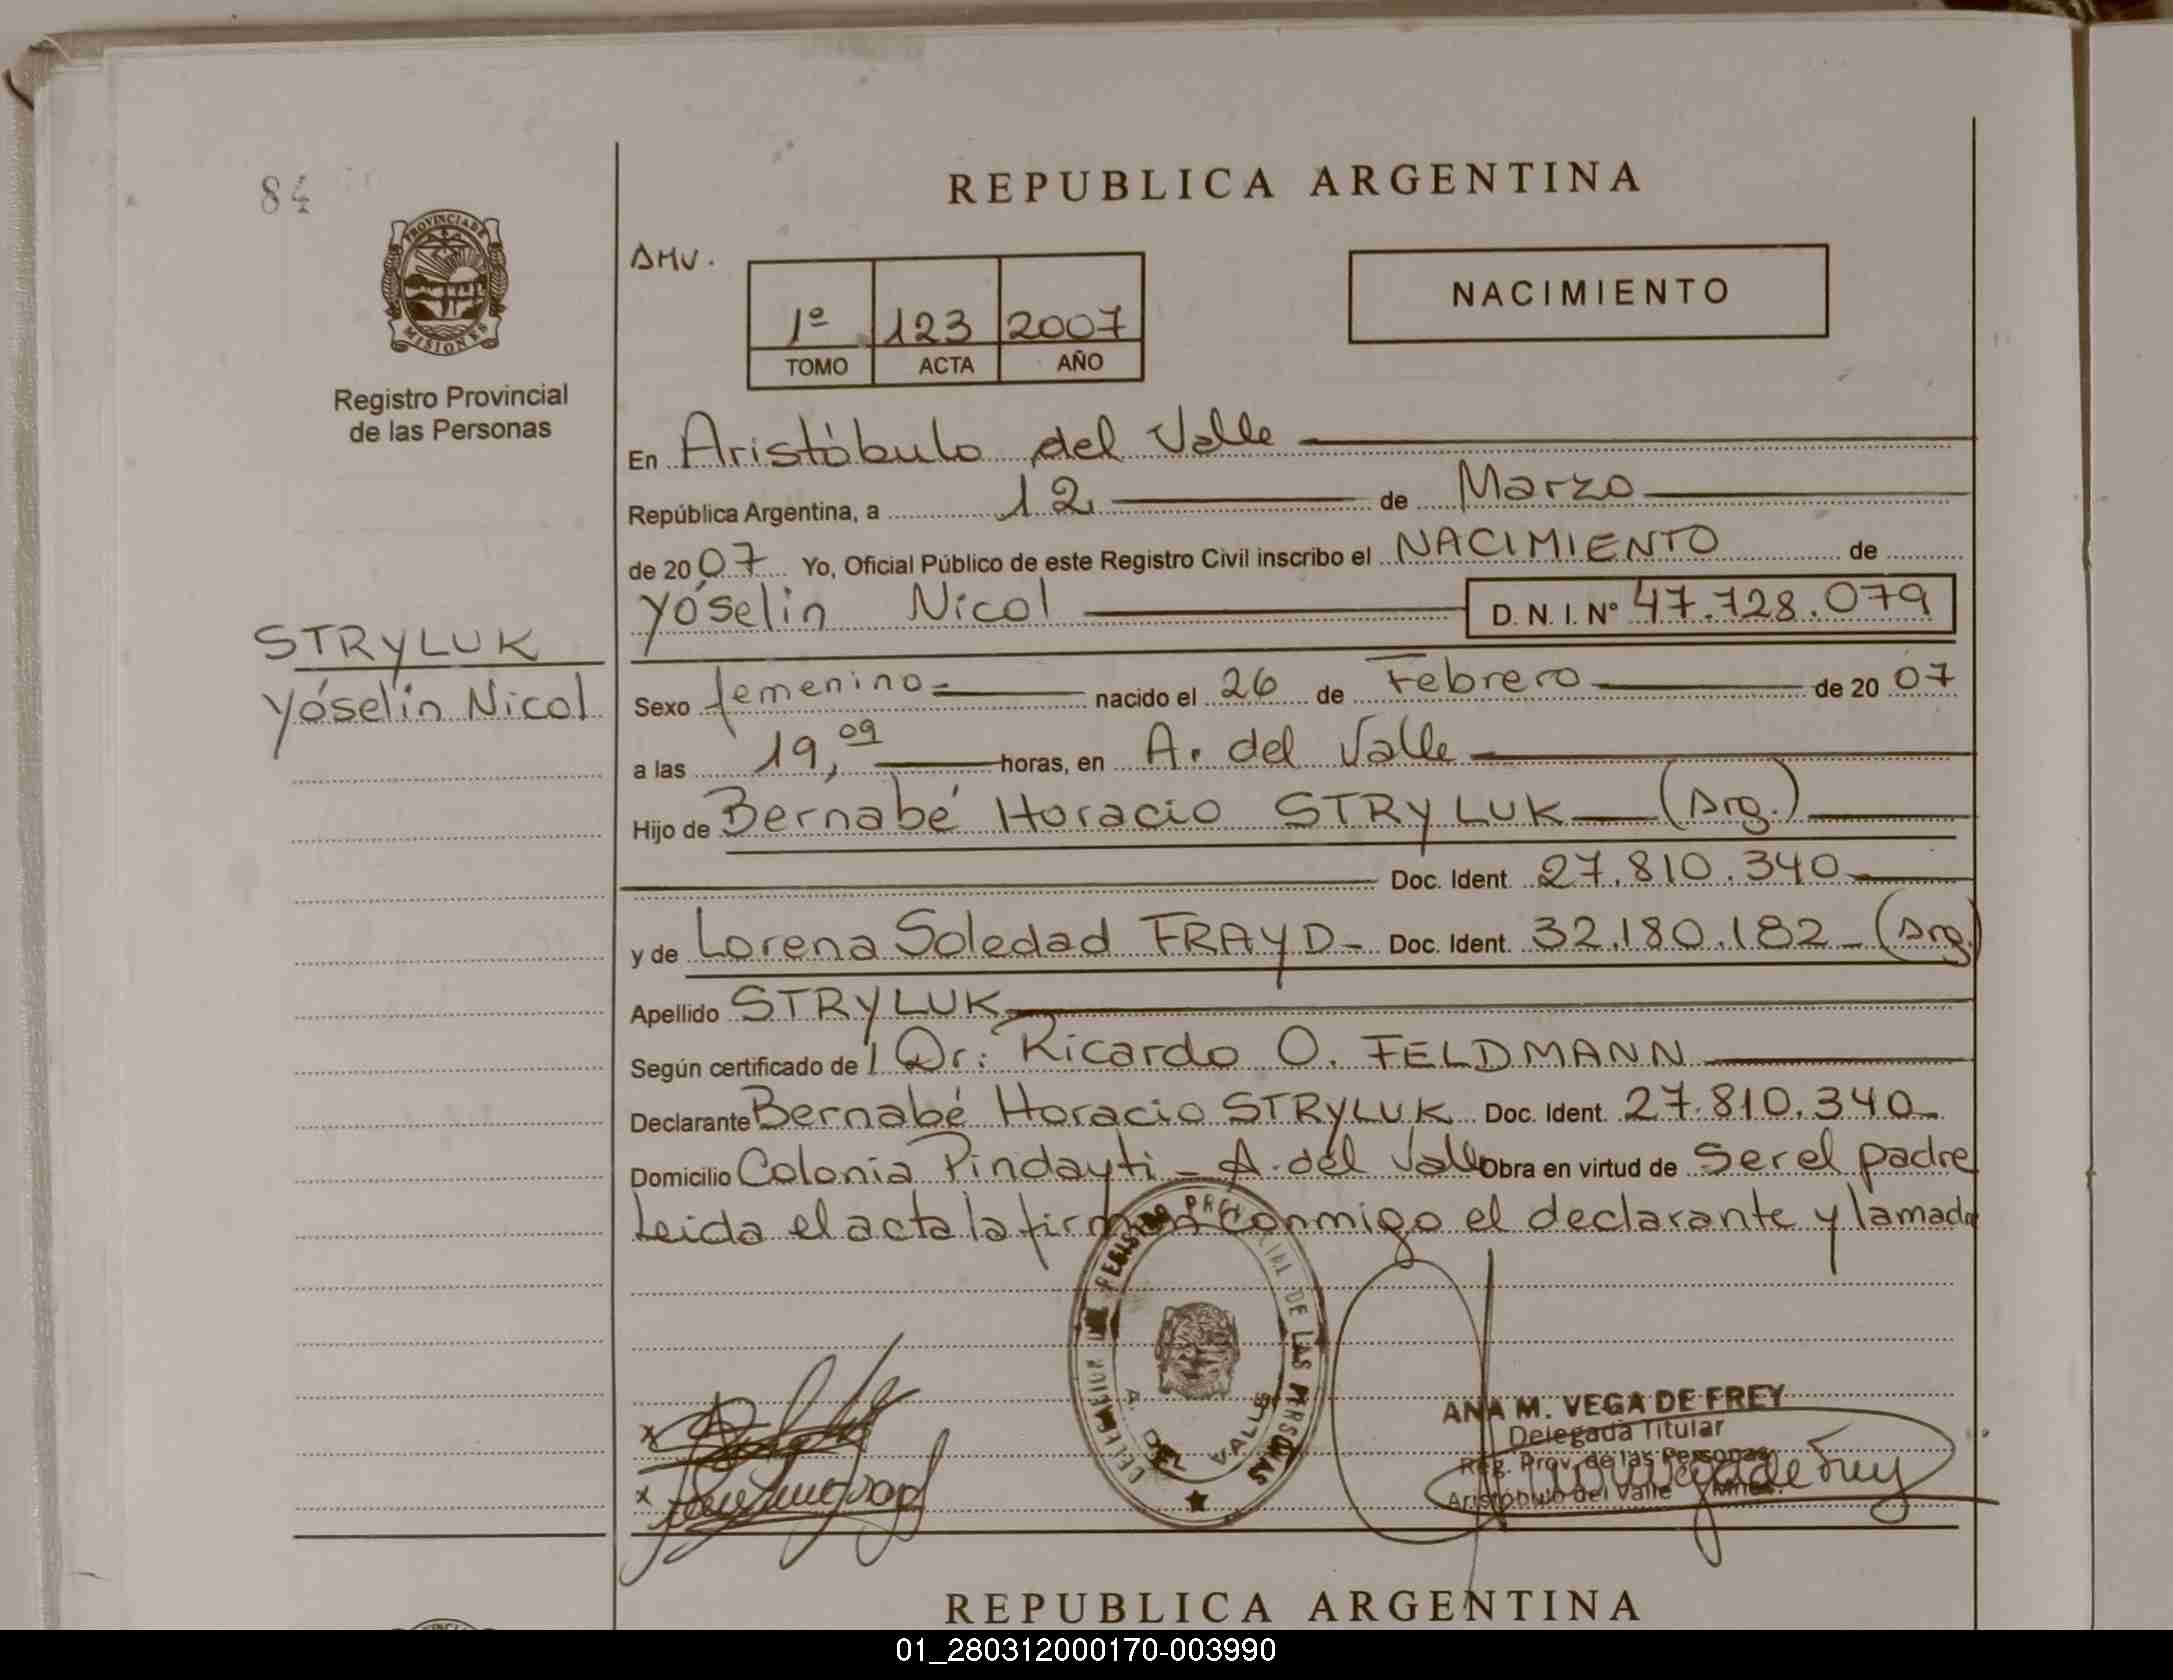 84
REPUBLICA ARGENTINA
PROVINCIA DE
MISIONES
Registro Provincial
de las Personas
AMV.
1º 123 2007
TOMO ACTA AÑO
NACIMIENTO
En Aristóbulo del Valle
República Argentina, a 12 de Marzo
de 2007 Yo, Oficial Público de este Registro Civil inscribo el NACIMIENTO de
Yóselin Nicol D. N. I. Nº 47.728.079
STRYLUK
Yóselin Nicol
Sexo femenino= nacido el 26 de Febrero de 2007
a las 19,09 horas, en A. del Valle
Hijo de Bernabé Horacio STRYLUK (Arg.)
Doc. Ident. 27.810.340
y de Lorena Soledad FRAYD- Doc. Ident. 32.180.182 - (Arg.)
Apellido STRYLUK
Según certificado de / Dr: Ricardo O. FELDMANN
Declarante Bernabé Horacio STRYLUK Doc. Ident. 27.810.340
Domicilio Colonia Pindayti - A. del Valle Obra en virtud de Ser el padre
Leida el acta la firman conmigo el declarante y la madre
REGISTRO PROVINCIAL DE LAS PERSONAS
DELEGACION
A. DEL VALLE
ANA M. VEGA DE FREY
Delegada Titular
Reg. Prov. de las Personas
Aristóbulo del Valle - Mnes.
REPUBLICA ARGENTINA
01_280312000170-003990